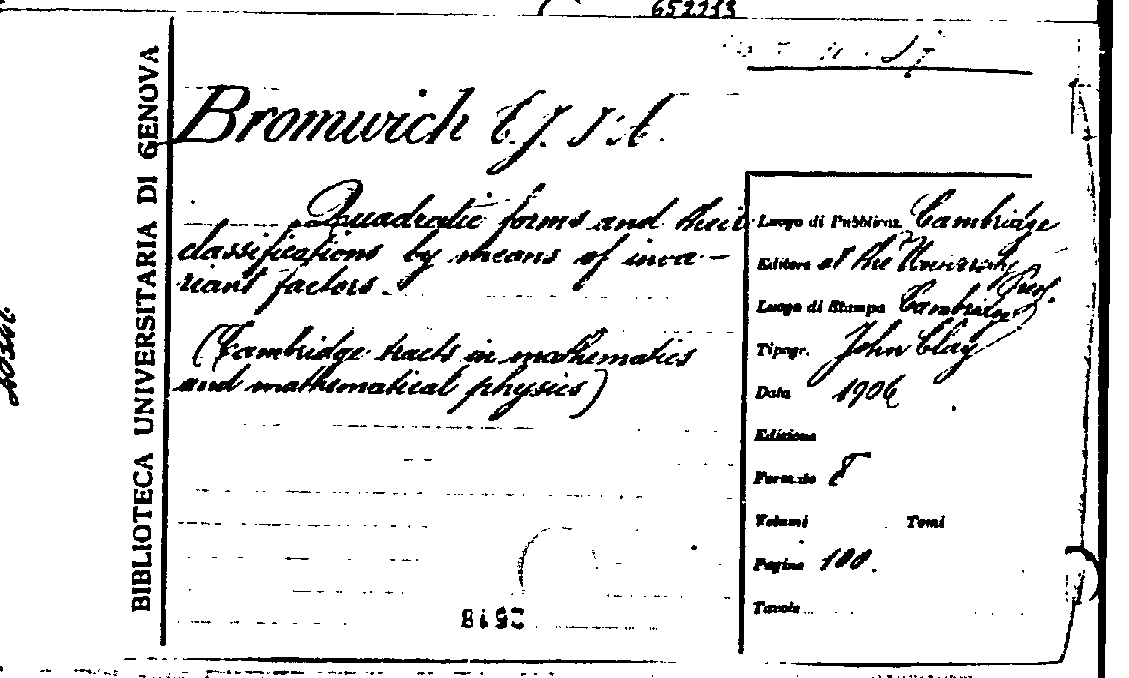 652213
BIBLIOTECA UNIVERSITARIA DI GENOVA
Bromwich T. J. I'A.
Quadratic forms and their
classifications by means of inva-
riant factors.
(Cambridge tracts in mathematics
and mathematical physics)
Luogo di Pubblicaz. Cambridge
Editore at the University Press.
Luogo di Stampa Cambridge
Tipogr. John Clay
Data 1906
Edizione
Formato 8
Volumi Tomi
Pagine 100.
Tavole